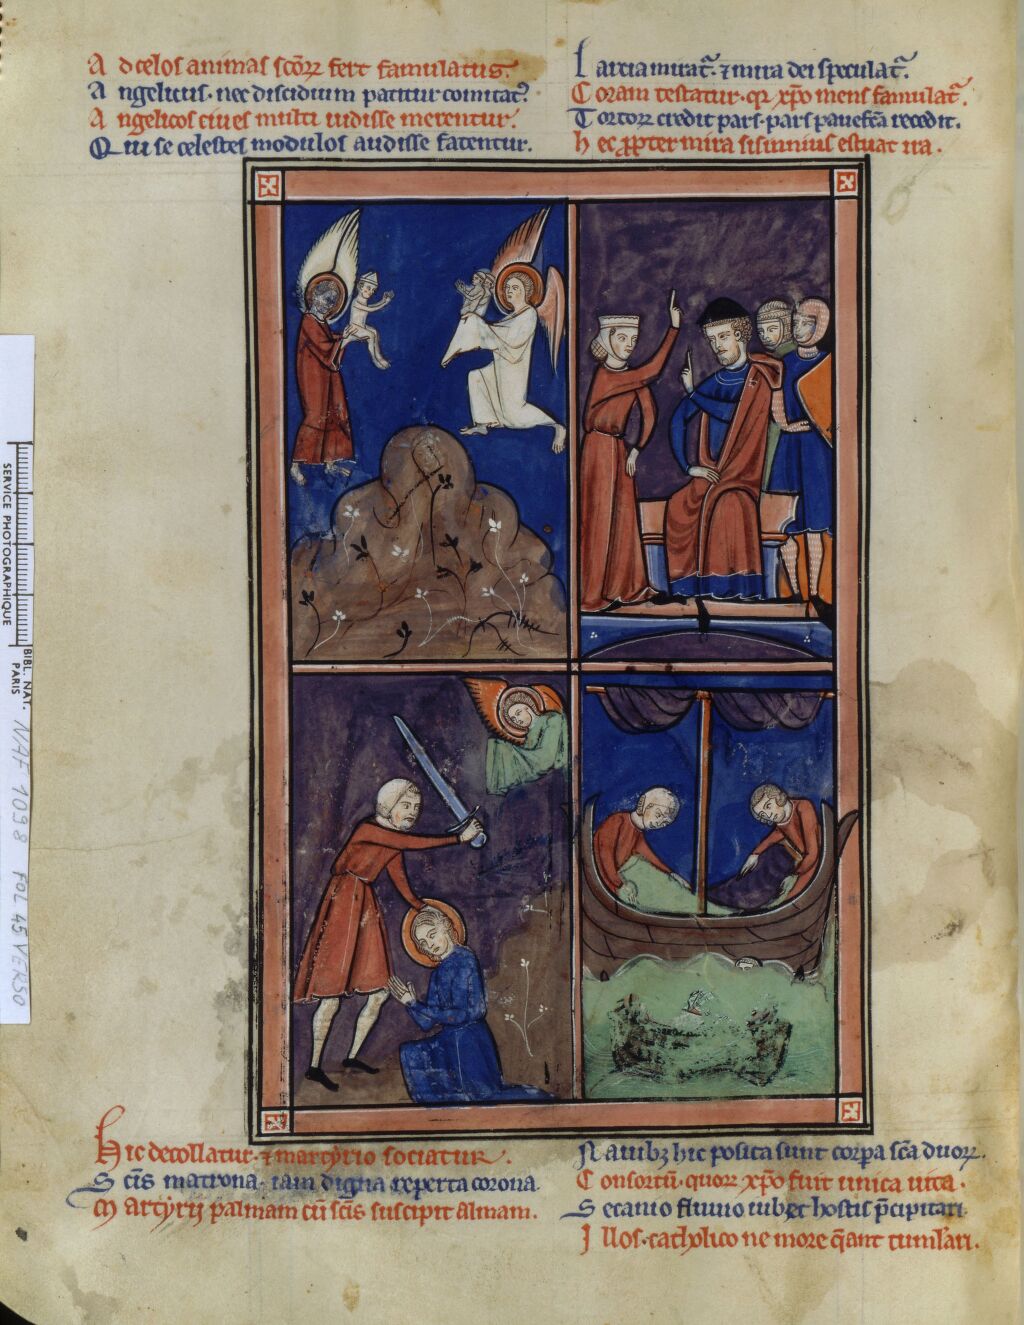 Ad celos animas scōꝝ fert famulatus.
Angelicus. nec discidium patitur comitat᷒.
Angelicos ciues multi uidisse merentur.
Qui se celestes modulos audisse fatentur.
Larcia mirat᷑. ⁊ mira dei speculat᷑.
Coram testatur. qꝛ xp̄o mens famulat᷑.
Tortoꝝ credit pars. pars pauefc̄a recedit.
Hec ꝓpter mira sisinnius estuat ira.
Hic decollatur. ⁊ martyrio sociatur.
Sc̄is matrona. iam digna reperta corona.
Martyrij palmam cū sc̄is suscipit almam.
Nauibꝫ hic posita sunt corpa sc̄a duoꝝ.
Consortū. quoꝝ xp̄o fuit unica uita.
Secanio fluuio iubet hostis p̄cipitari
Illos. catholico ne more q̄ant tumulari.
SERVICE PHOTOGRAPHIQUE
BIBL. NAT. PARIS
NAF 1098 FOL 45 VERSO